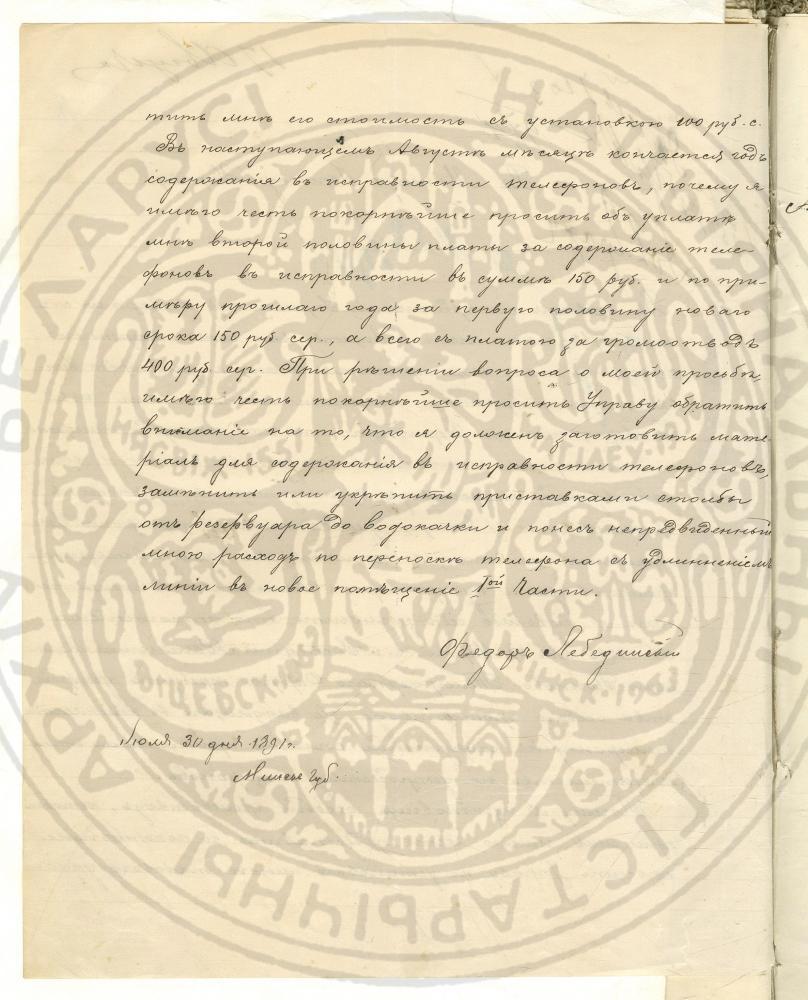 тить мнѣ его стоимость съ установкою 100 руб. с.
Въ наступающемъ Августѣ мѣсяцѣ кончается годъ
содержанія въ исправности телефоновъ, почему я
имѣю честь покорнѣйше просить объ уплатѣ
мнѣ второй половины платы за содержаніе теле-
фоновъ въ исправности въ суммѣ 150 руб. и по при-
мѣру прошлаго года за первую половину новаго
срока 150 руб. сер., а всего съ платою за громоотводъ
400 руб. сер. При рѣшеніи вопроса о моей просьбѣ,
имѣю честь покорнѣйше просить Управу обратить
вниманіе на то, что я долженъ заготовить мате-
ріалъ для содержанія въ исправности телефоновъ,
замѣнить или укрѣпить приставками столбы
отъ резервуара до водокачки и понесъ непредвиденный
мною расходъ по переноскѣ телефона съ удлинненіемъ
линіи въ новое помѣщеніе Iой части.
Федоръ Лебединскій
Июля 30 дня 1891 г.
Минск губ.
АРХІЎ БЕЛАРУСІ
НАЦЫЯНАЛЬНЫ
ГІСТАРЫЧНЫ